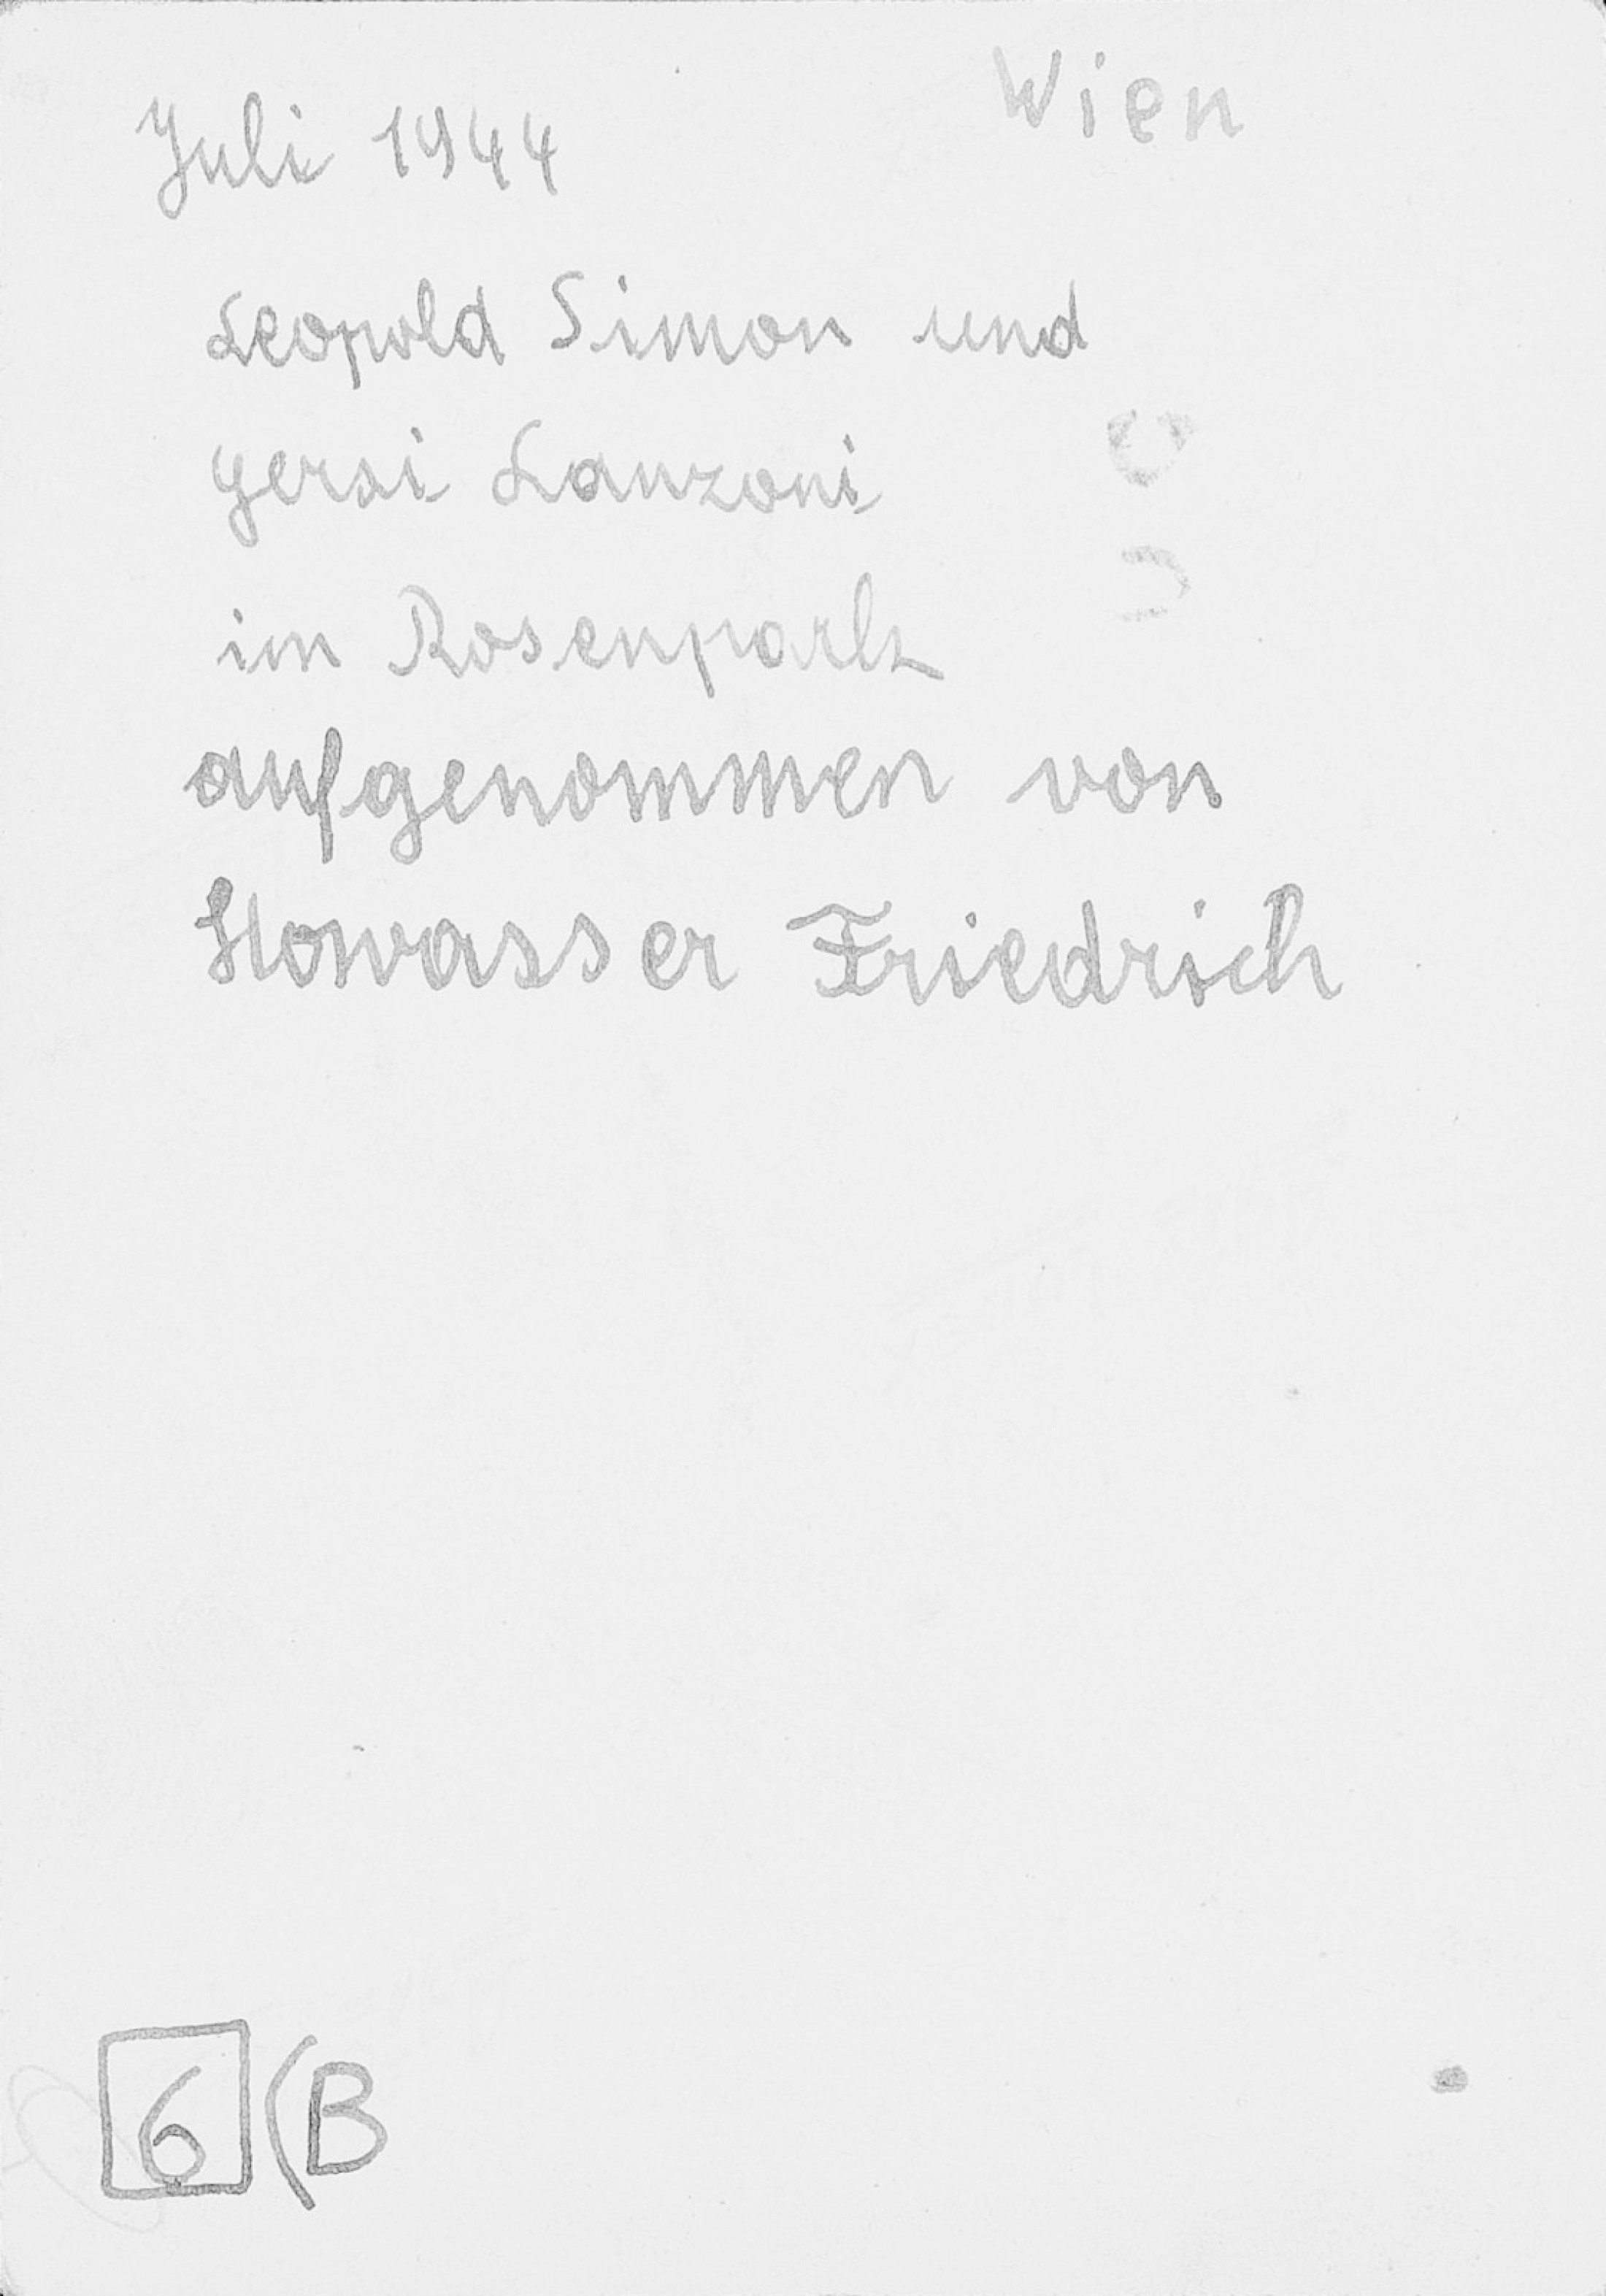 Juli 1944 Wien
Leopold Simon und
Gersi Lanzoni
im Rosenpark
aufgenommen von
Stowasser Friedrich
6 (B